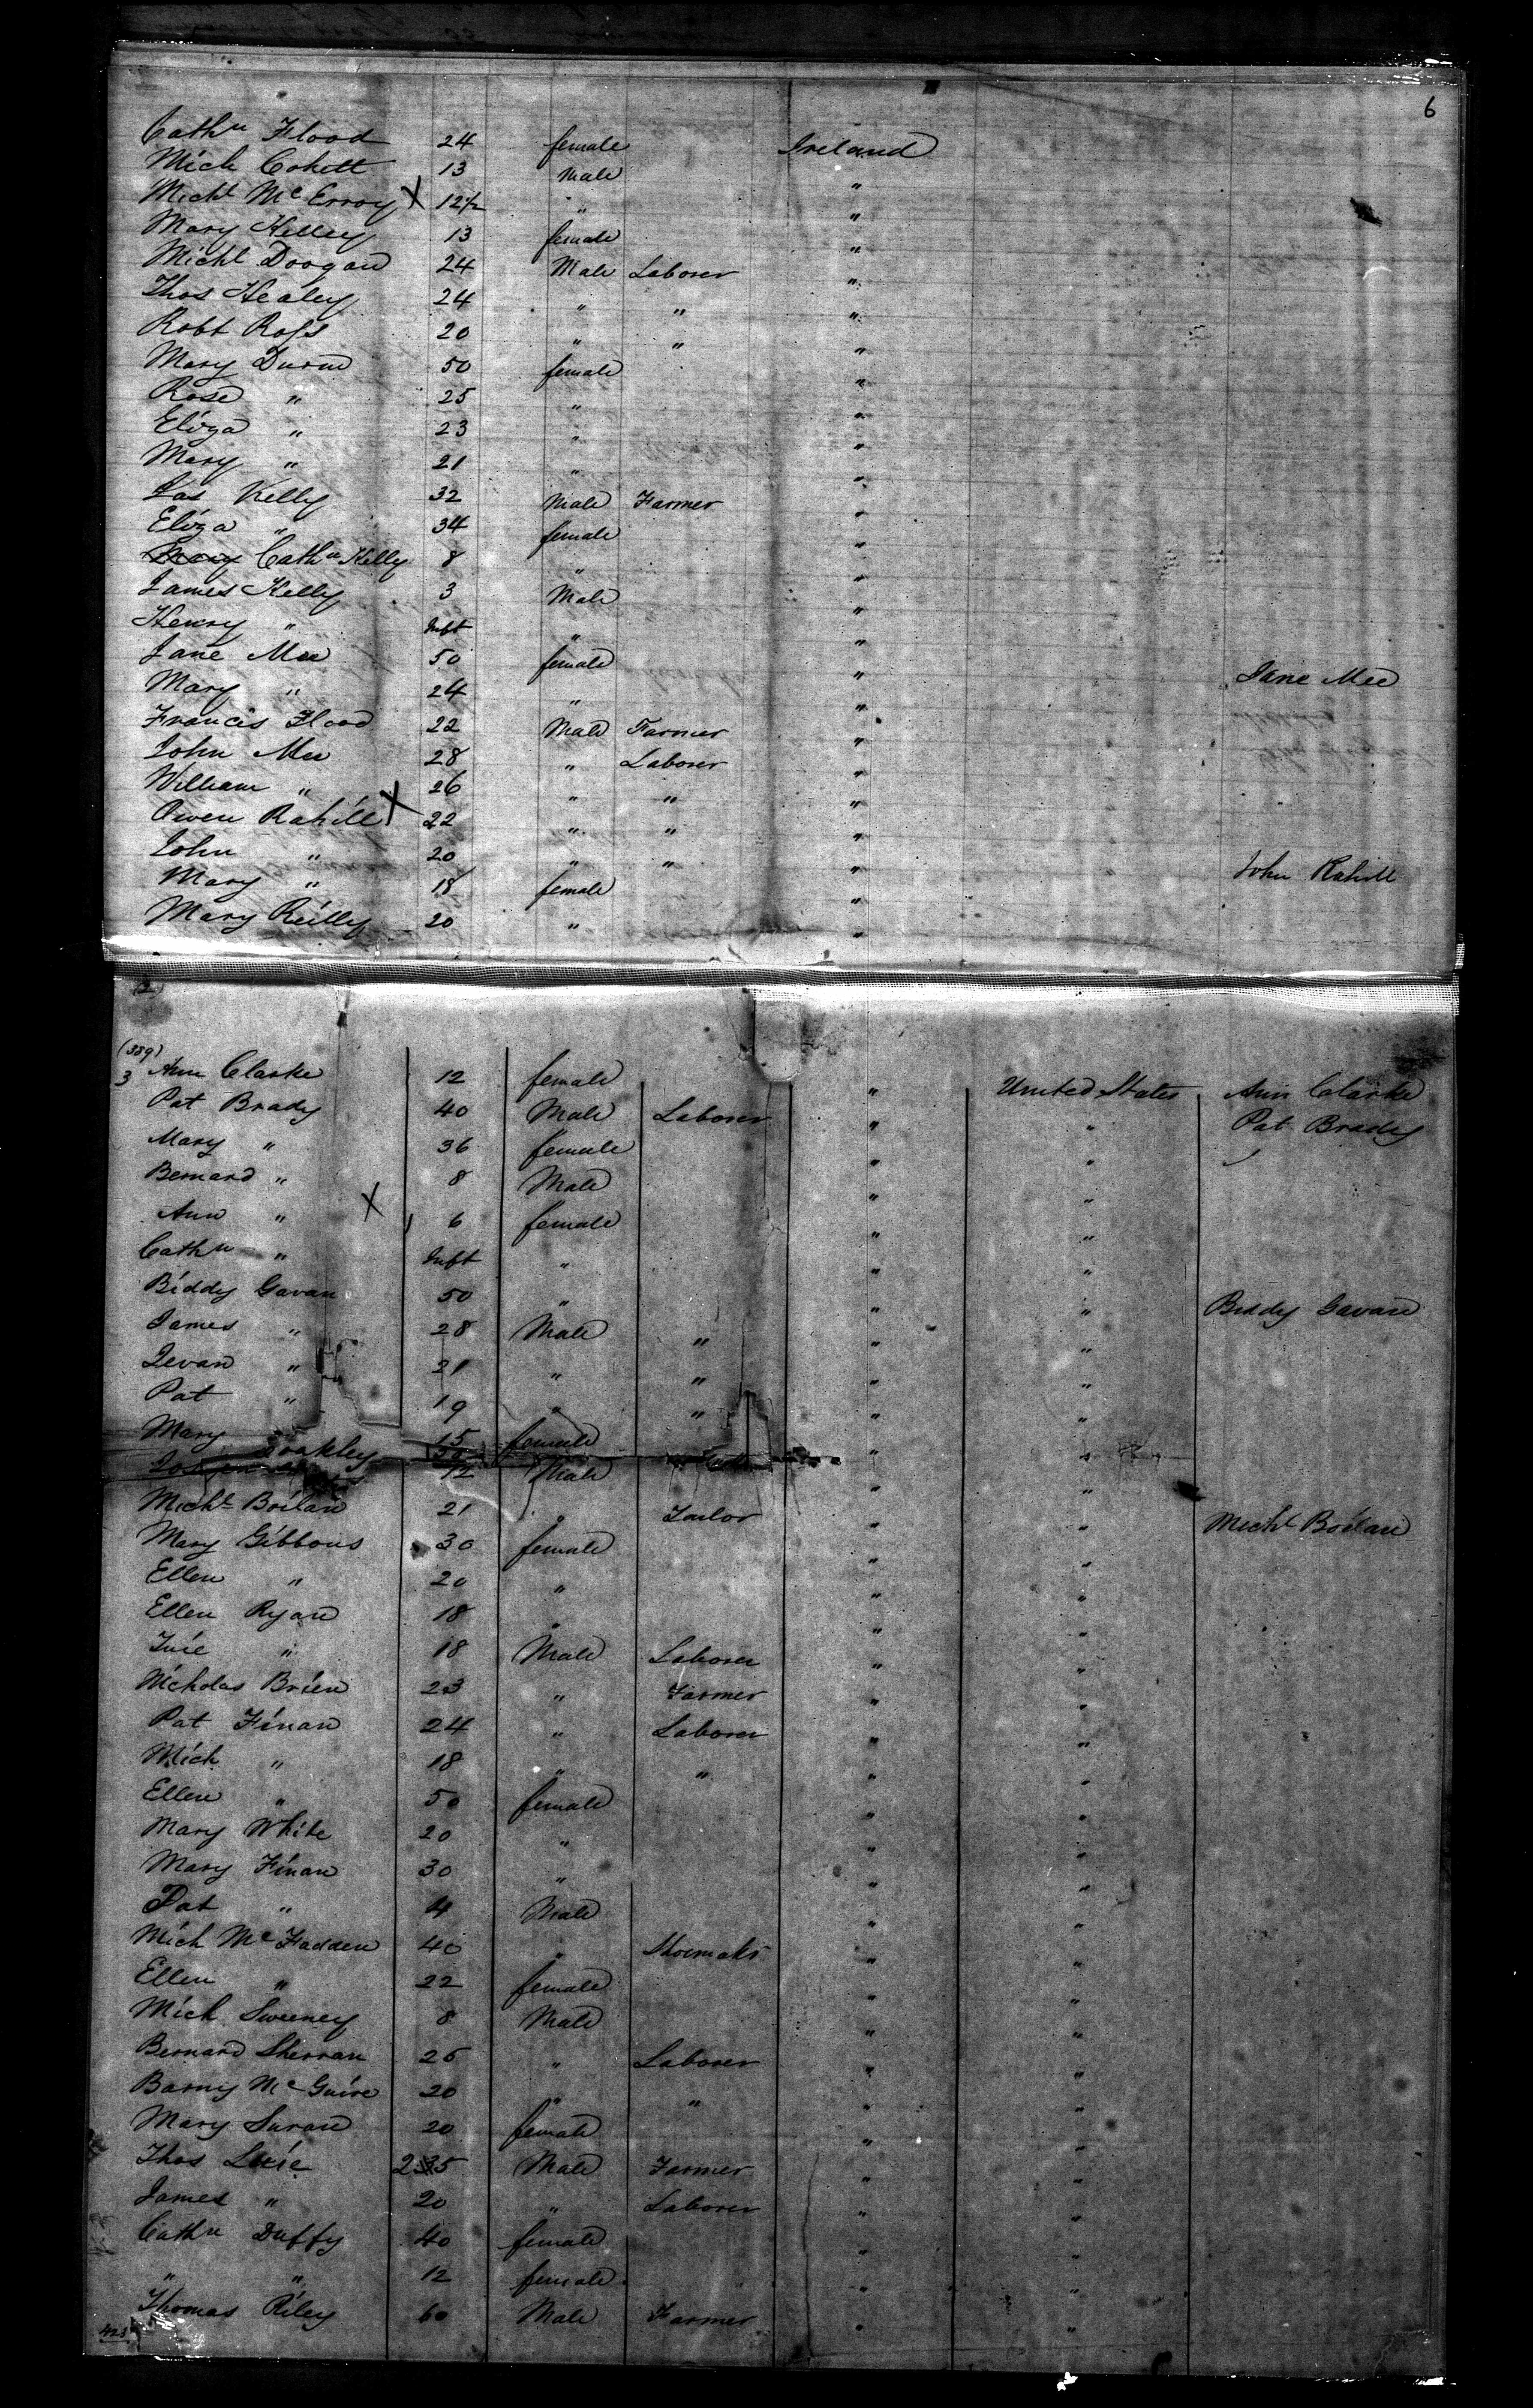 6
Cathn Flood 24 female Ireland
Mich Cokett 13 Male "
Michl McErroy X 12 1/2 " "
Mary Kelley 13 female "
Michl Doogan 24 Male Laborer "
Thos Healey 24 " " "
Robt Ross 20 " " "
Mary Durnd 50 female "
Rose " 25 " "
Eliza " 23 " "
Mary " 21 " "
Jas Kelly 32 Male Farmer "
Eliza " 34 female "
Cathn Kelly 8 " "
James Kelly 3 Male "
Henry " Inft " "
Jane Mee 50 female " Jane Mee
Mary " 24 " "
Francis Flood 22 Male Farmer "
John Mee 28 " Laborer "
William " 26 " " "
Owen Rahill X 22 " " "
John " 20 " " " John Rahill
Mary " 18 female "
Mary Reilly 20 " "
(339)
3 Ann Clarke 12 female " United States Ann Clarke
Pat Brady 40 Male Laborer " " Pat Brady
Mary " 36 female " "
Bernard " 8 Male " "
Ann " X 6 female " "
Cathn " Inft " " "
Biddy Gavan 50 " " " Biddy Gavan
James " 28 Male " " "
" 21 " " " "
Pat " 19 " " " "
Mary 15 female " "
12 Male " "
Michl Boilan 21 " Tailor " " Michl Boilan
Mary Gibbons 30 female " "
Ellen " 20 " " "
Ellen Ryan 18 " " "
" 18 Male Laborer " "
Nicholas Brien 23 " Farmer " "
Pat Finan 24 " Laborer " "
Mich " 18 " " " "
Ellen " 50 female " "
Mary White 20 " " "
Mary Finan 30 " " "
Pat " 4 Male " "
Mich McFadden 40 " Shoemakr " "
Ellen " 22 female " "
Mich Sweeney 8 Male " "
Bernard Sherran 26 " Laborer " "
Barny McGuire 20 " " " "
Mary 20 female " "
Thos Male Farmer " "
James " 20 " Laborer " "
Cathn Duffy 40 female " "
" " 12 female " "
Thomas Riley 60 Male Farmer " "
423